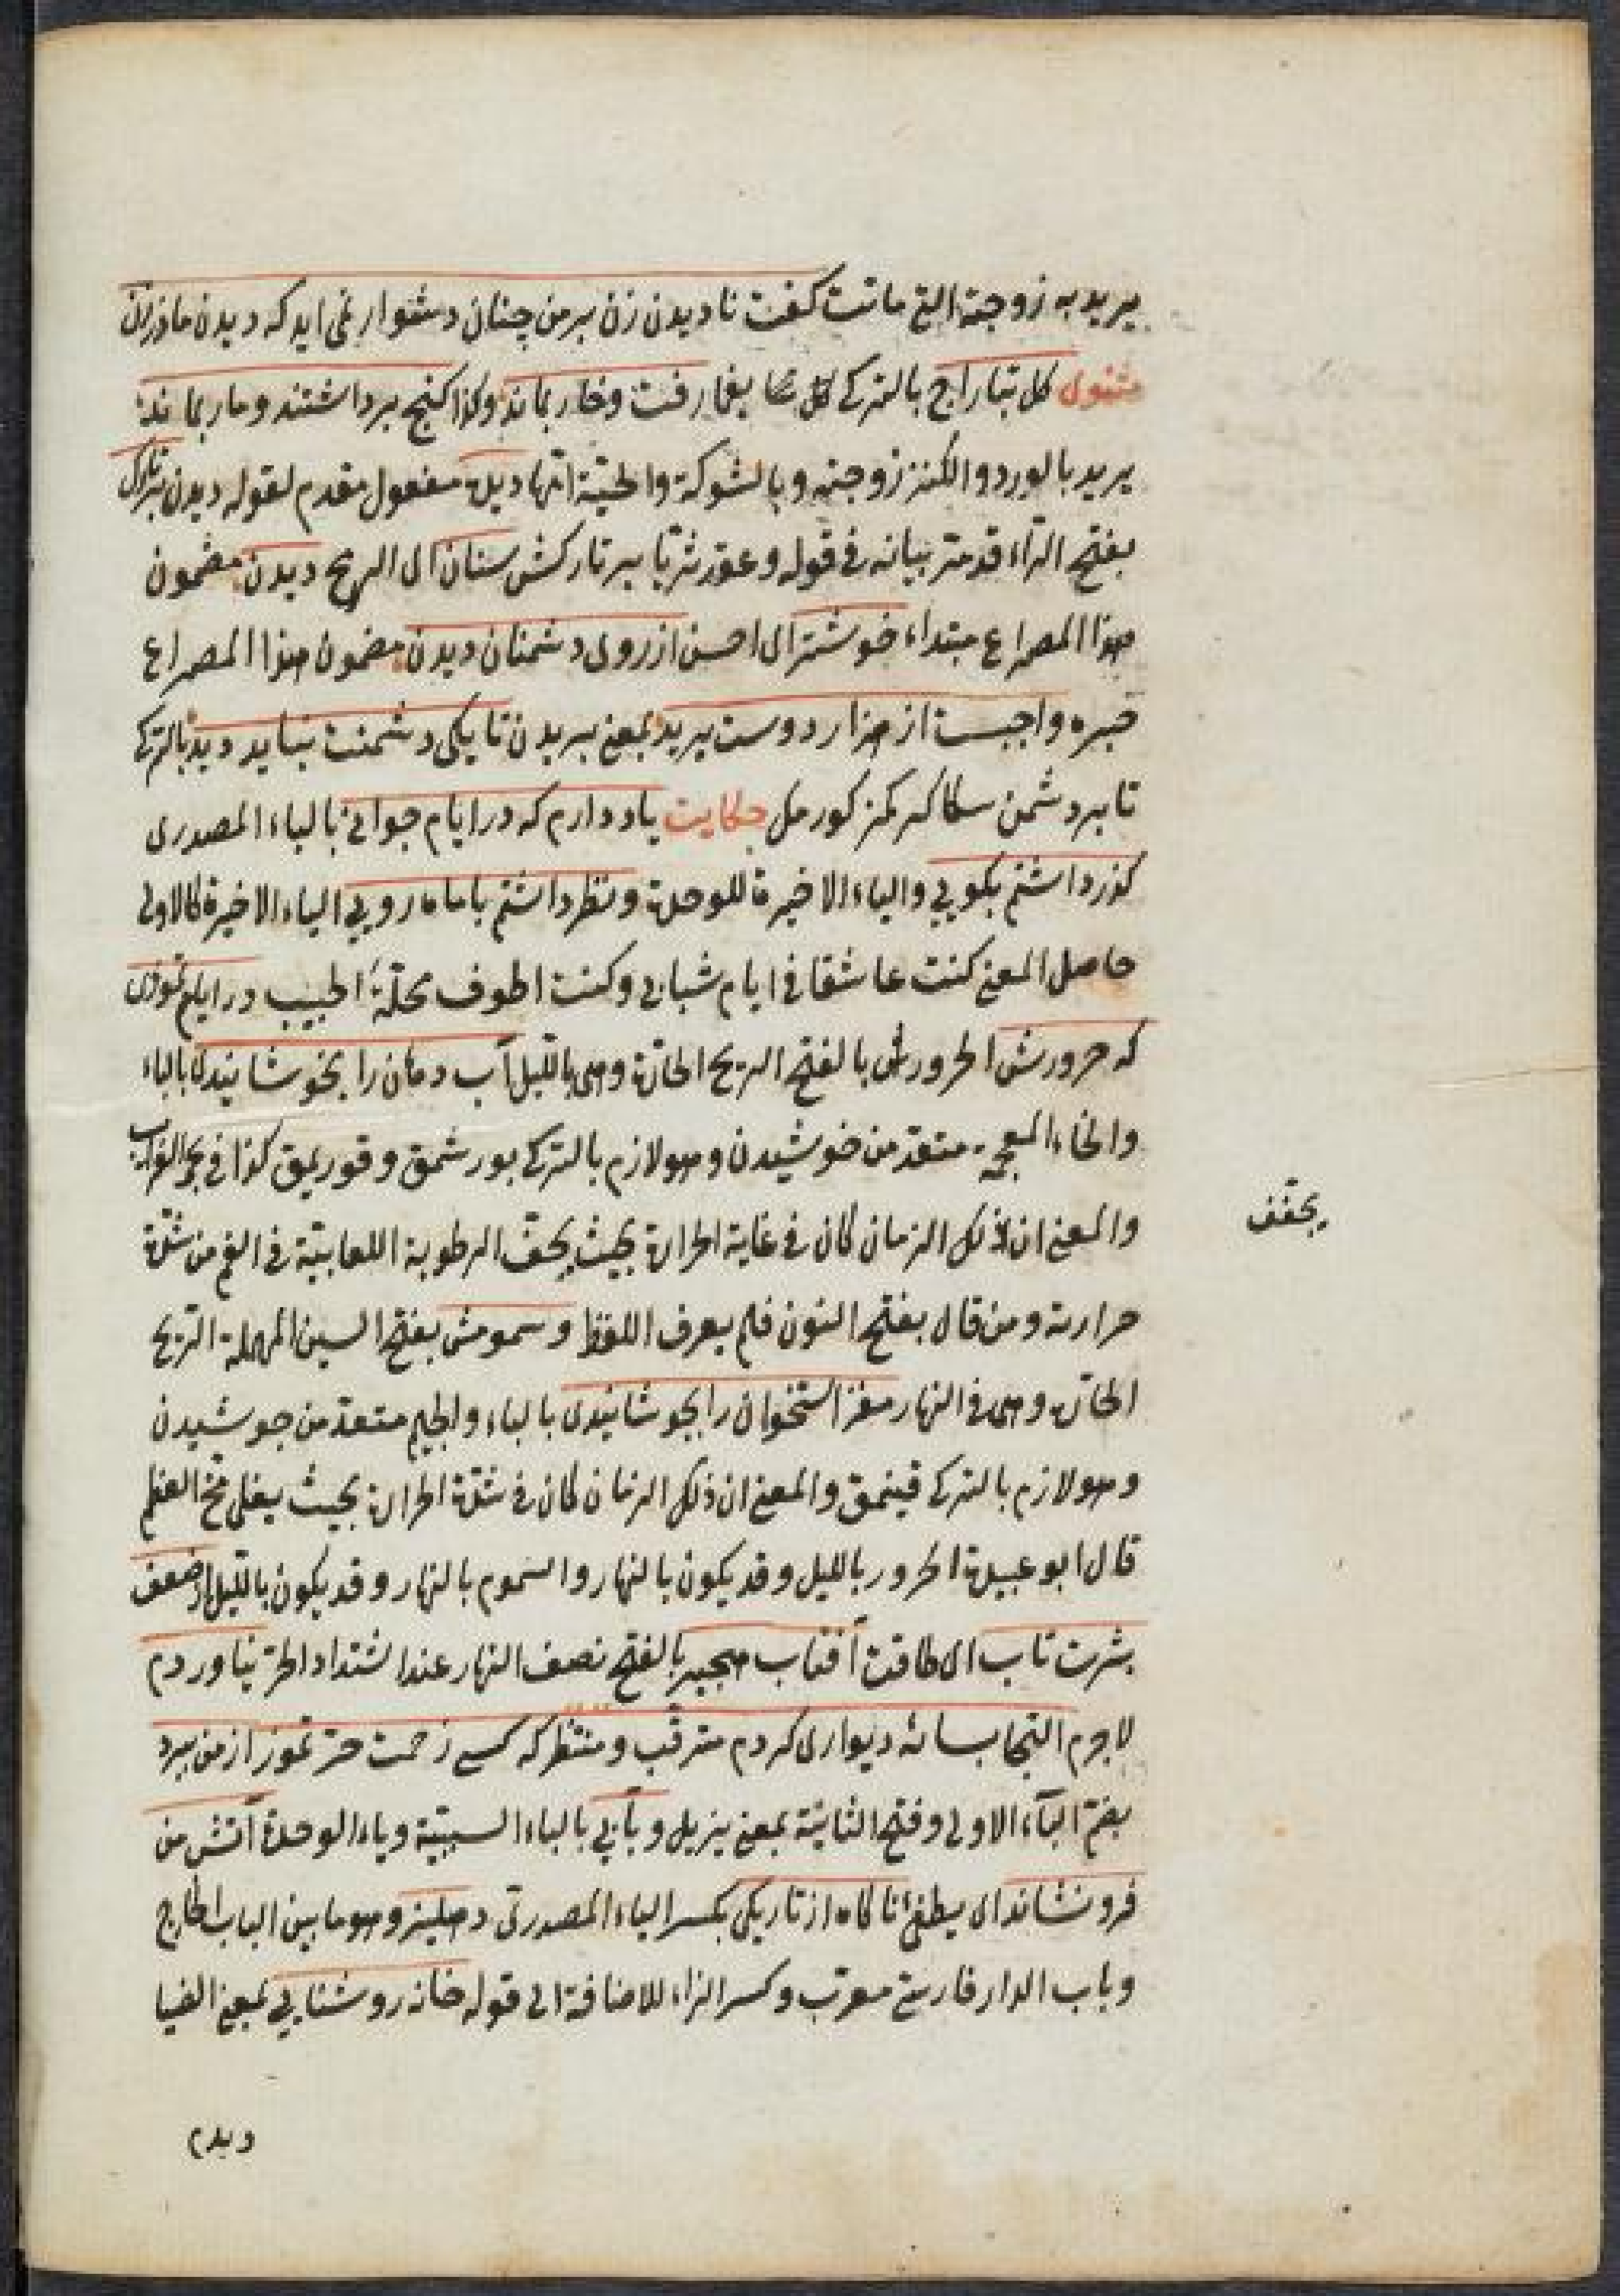 يريد به زوجته التي ماتت كفت نا ديدن زن بر من چنان دشوار نمى ايد كه ديدن مادر زن
مثنوى كل بتاراج بالتركى يغما رفت وخار بماند وكذا كنج برداشتند ومار بماند
يريد بالورد والكنز زوجته وبالشوكة والحيّة امّها ديدۀ مفعول مقدم لقوله ديدن بر تارك
بفتح الرّاء قد مرّ بيانه فى قوله وعقد ثريّا بر تاركش سنان اى الرمح ديدن مضمون
هذا المصراع مبتداء خوشتر اى احسن از روى دشمنان ديدن مضمون هذا المصراع
خبره واجبست از هزار دوست بريد بمعنى بريدن تا يكى دشمنت نبايد ديد بالتركى
تا بر دشمن سكا كركمز كورمك حكايت ياد دارم كه در ايام جوانى بالياء المصدرى
كذر داشتم بكويى والياء الاخيرة للوحدة ونظر داشتم با ماه رويى الياء الاخيرة كالاولى
حاصل المعنى كنت عاشقا فى ايام شبابى وكنت اطوف محلّة الحبيب در ايام تموزى
كه حرورش الحرور بالفتح الريح الحارّة وهى بالليل آب دهان را بخوشانيدى بالباء
والخاء المعجمة متعد من خوشيدن وهو لازم بالتركى بورشمق وقوريمق كذا فى بحر الغرائب
والمعنى ان ذلك الزمان كان فى غاية الحرارة بحيث يجفّ الرطوبة اللعابيّة فى الفم من شدّة
يجفّف
حرارته ومن قال بفتح النون فلم يعرف اللفظ وسمومش بفتح السين المهملة الرّيح
الحارّة وهى فى النهار مغز استخوان را بجوشانيدى بالباء والجيم متعدّ من جوشيدن
وهو لازم بالتركى قينمق والمعنى ان ذلك الزمان كان فى شدّة الحرارة بحيث يغلى مخّ العظم
قال ابو عبيدة الحرور بالليل وقد يكون بالنهار والسموم بالنهار وقد يكون بالليل از ضعف
بشريت تاب اى طاقت آفتاب هجير بالفتح نصف النهار عند اشتداد الحرّ نياوردم
لاجرم التجا بسايۀ ديوارى كردم مترقّب ومنتظر كه كسى زحمت حرّ تموز از من ببرد
بضم الباء الاولى وفتح الثانية بمعنى يزيل وبآبى بالباء السببيّة وياء الوحدة آتش من
فرو نشاند اى يطفئ ناكاه از تاريكى بكسر الياء المصدرى دهليز وهو ما بين الباب الخارج
وباب الدار فارسىّ معرّب وكسر الزاء للاضافة الى قوله خانه روشنايى بمعنى الضيا
ديدم